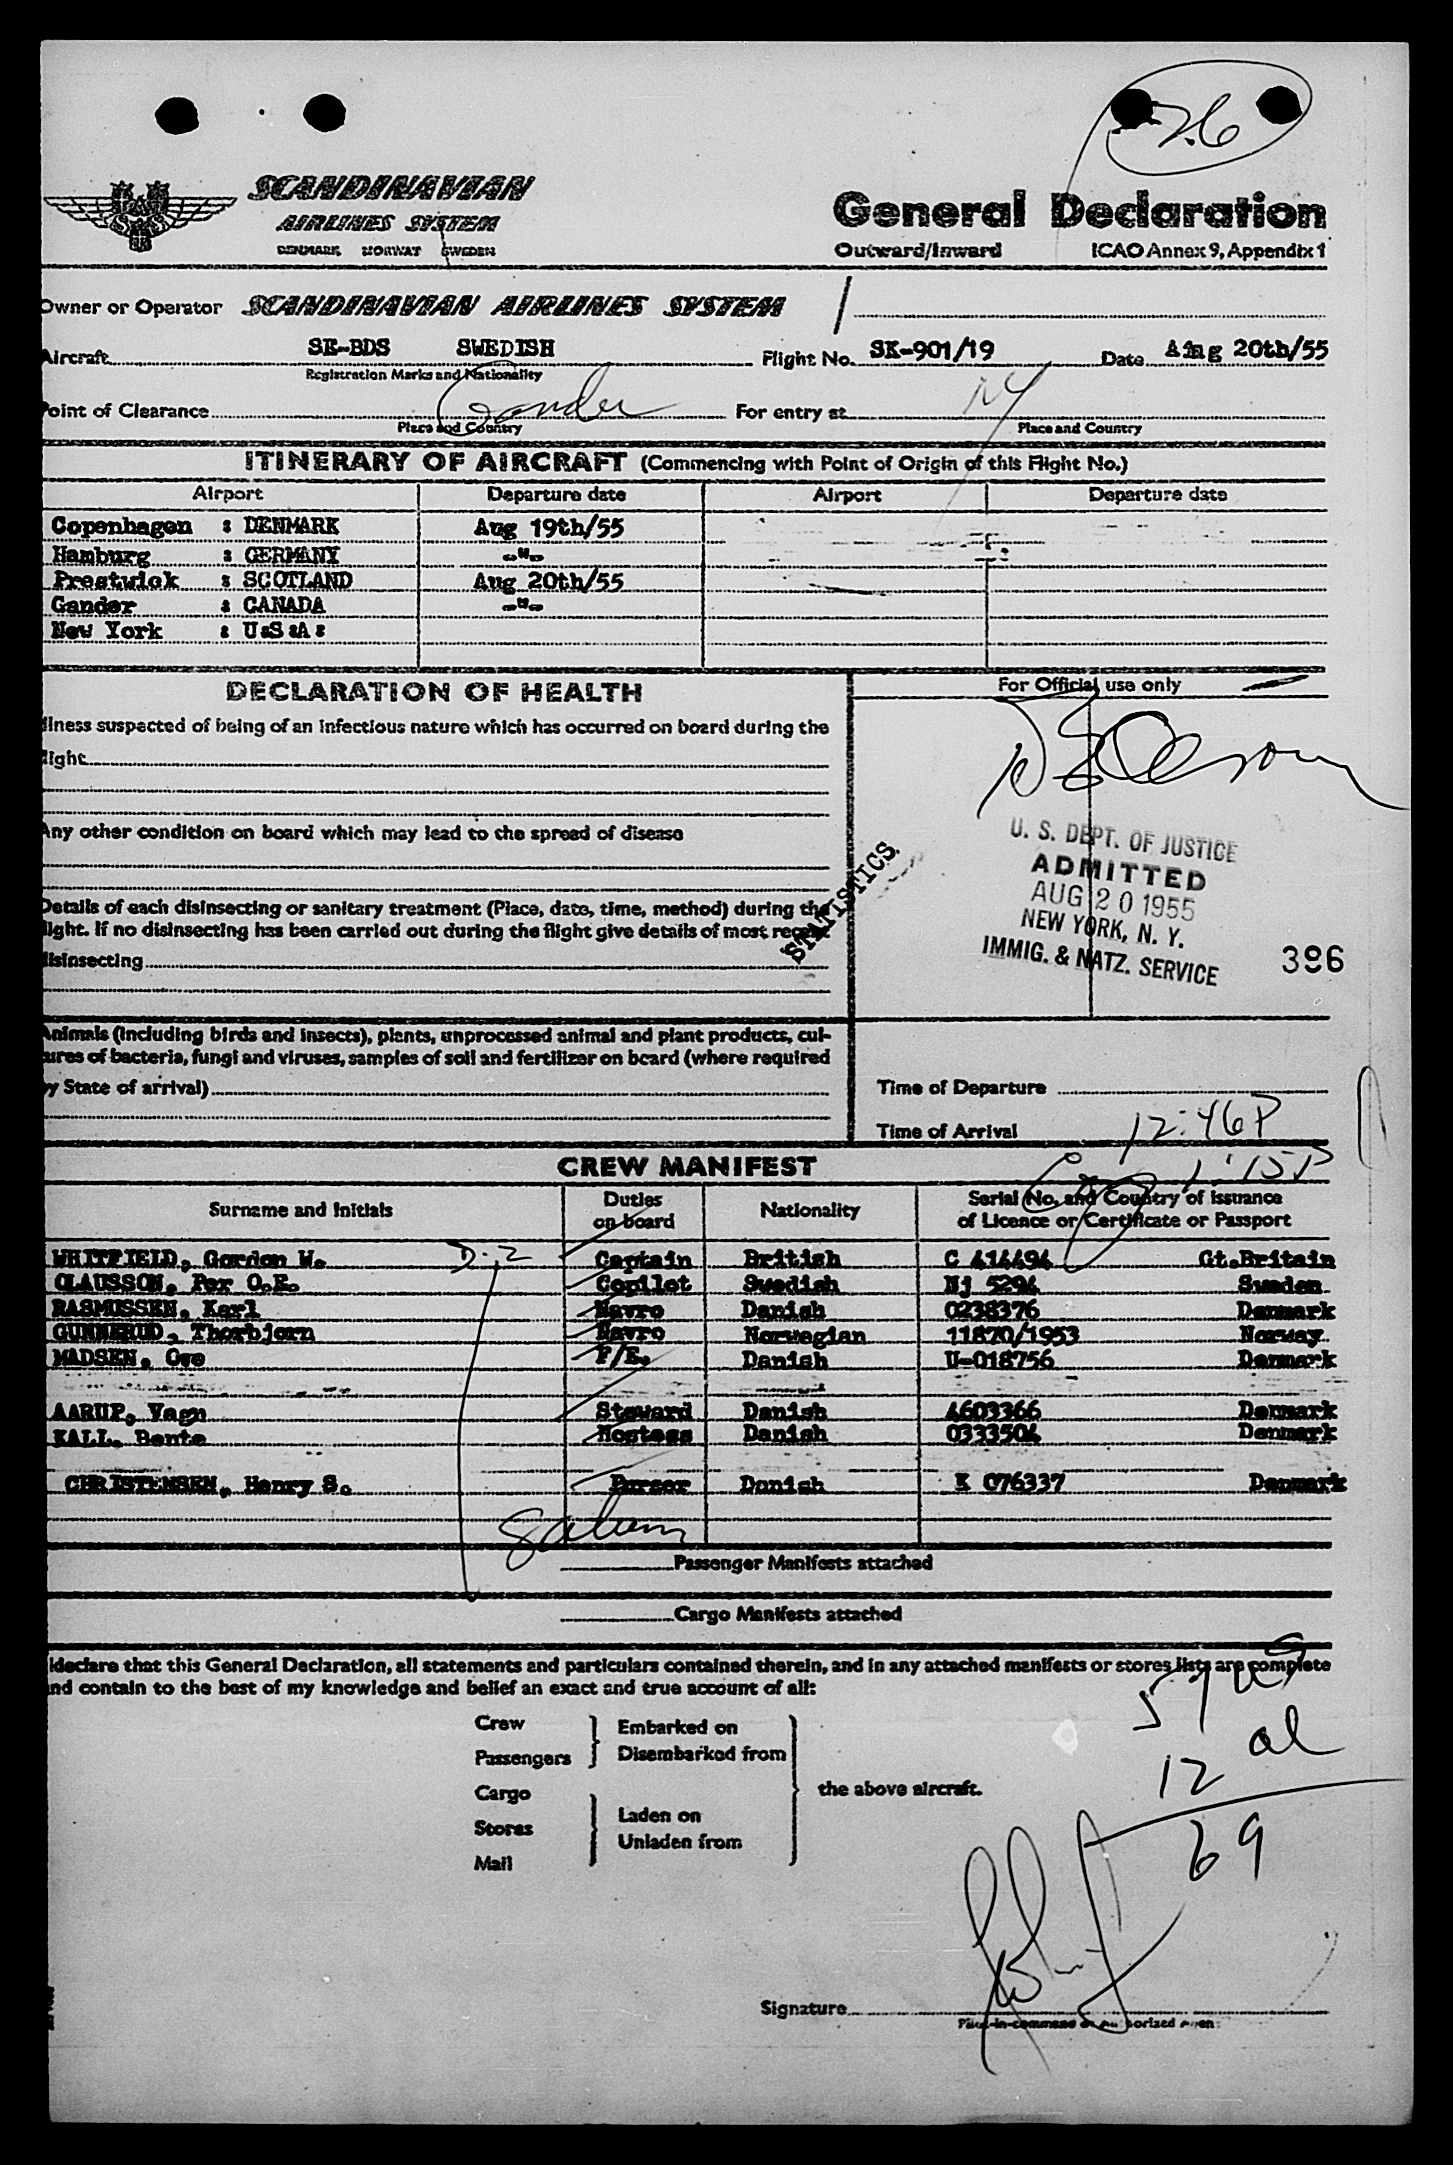 26
SCANDINAVIAN
AIRLINES SYSTEM
DENMARK NORWAY SWEDEN
General Declaration
Outward/Inward ICAO Annex 9, Appendix 1
Owner or Operator SCANDINAVIAN AIRLINES SYSTEM /
Aircraft SE-BDS SWEDISH Flight No. SK-901/19 Date Aug 20th/55
Registration Marks and Nationality
Point of Clearance Gander For entry at NY
Place and Country Place and Country
ITINERARY OF AIRCRAFT (Commencing with Point of Origin of this Flight No.)
Airport Departure date Airport Departure date
Copenhagen : DENMARK Aug 19th/55
Hamburg : GERMANY -"-
Prestwick : SCOTLAND Aug 20th/55
Gander : CANADA -"-
New York : U:S:A:
DECLARATION OF HEALTH
For Official use only
llness suspected of being of an infectious nature which has occurred on board during the
light
Any other condition on board which may lead to the spread of disease
Details of each disinsecting or sanitary treatment (Place, date, time, method) during the
light. If no disinsecting has been carried out during the flight give details of most recent
disinsecting
STATISTICS.
U. S. DEPT. OF JUSTICE
ADMITTED
AUG 20 1955
NEW YORK, N. Y.
IMMIG. & NATZ. SERVICE
396
Animals (including birds and insects), plants, unprocessed animal and plant products, cul-
tures of bacteria, fungi and viruses, samples of soil and fertilizer on board (where required
by State of arrival)
Time of Departure
Time of Arrival 12:46P
1:15P
CREW MANIFEST
Surname and Initials Duties on board Nationality Serial No. and Country of issuance of Licence or Certificate or Passport
WHITFIELD, Gordon W. D.2 Captain British C 414494 Gt.Britain
CLAUSSON, Per O.E. Copilot Swedish Nj 5294 Sweden
RASMUSSEN, Karl Navro Danish 0238376 Denmark
GUNNERUD, Thorbjorn Navro Norwegian 11870/1953 Norway
MADSEN, Ove F/E. Danish U-018756 Denmark
AARUP, Vagn Steward Danish 4603366 Denmark
KALL, Bente Hostess Danish 0333504 Denmark
CHRISTENSEN, Henry S. Purser Danish K 076337 Denmark
Passenger Manifests attached
Cargo Manifests attached
I declare that this General Declaration, all statements and particulars contained therein, and in any attached manifests or stores lists are complete
and contain to the best of my knowledge and belief an exact and true account of all:
57 US
12 al
69
Crew Embarked on
Passengers Disembarked from
the above aircraft.
Cargo
Stores Laden on
Unladen from
Mail
Signature
Pilot-in-command or authorized agent